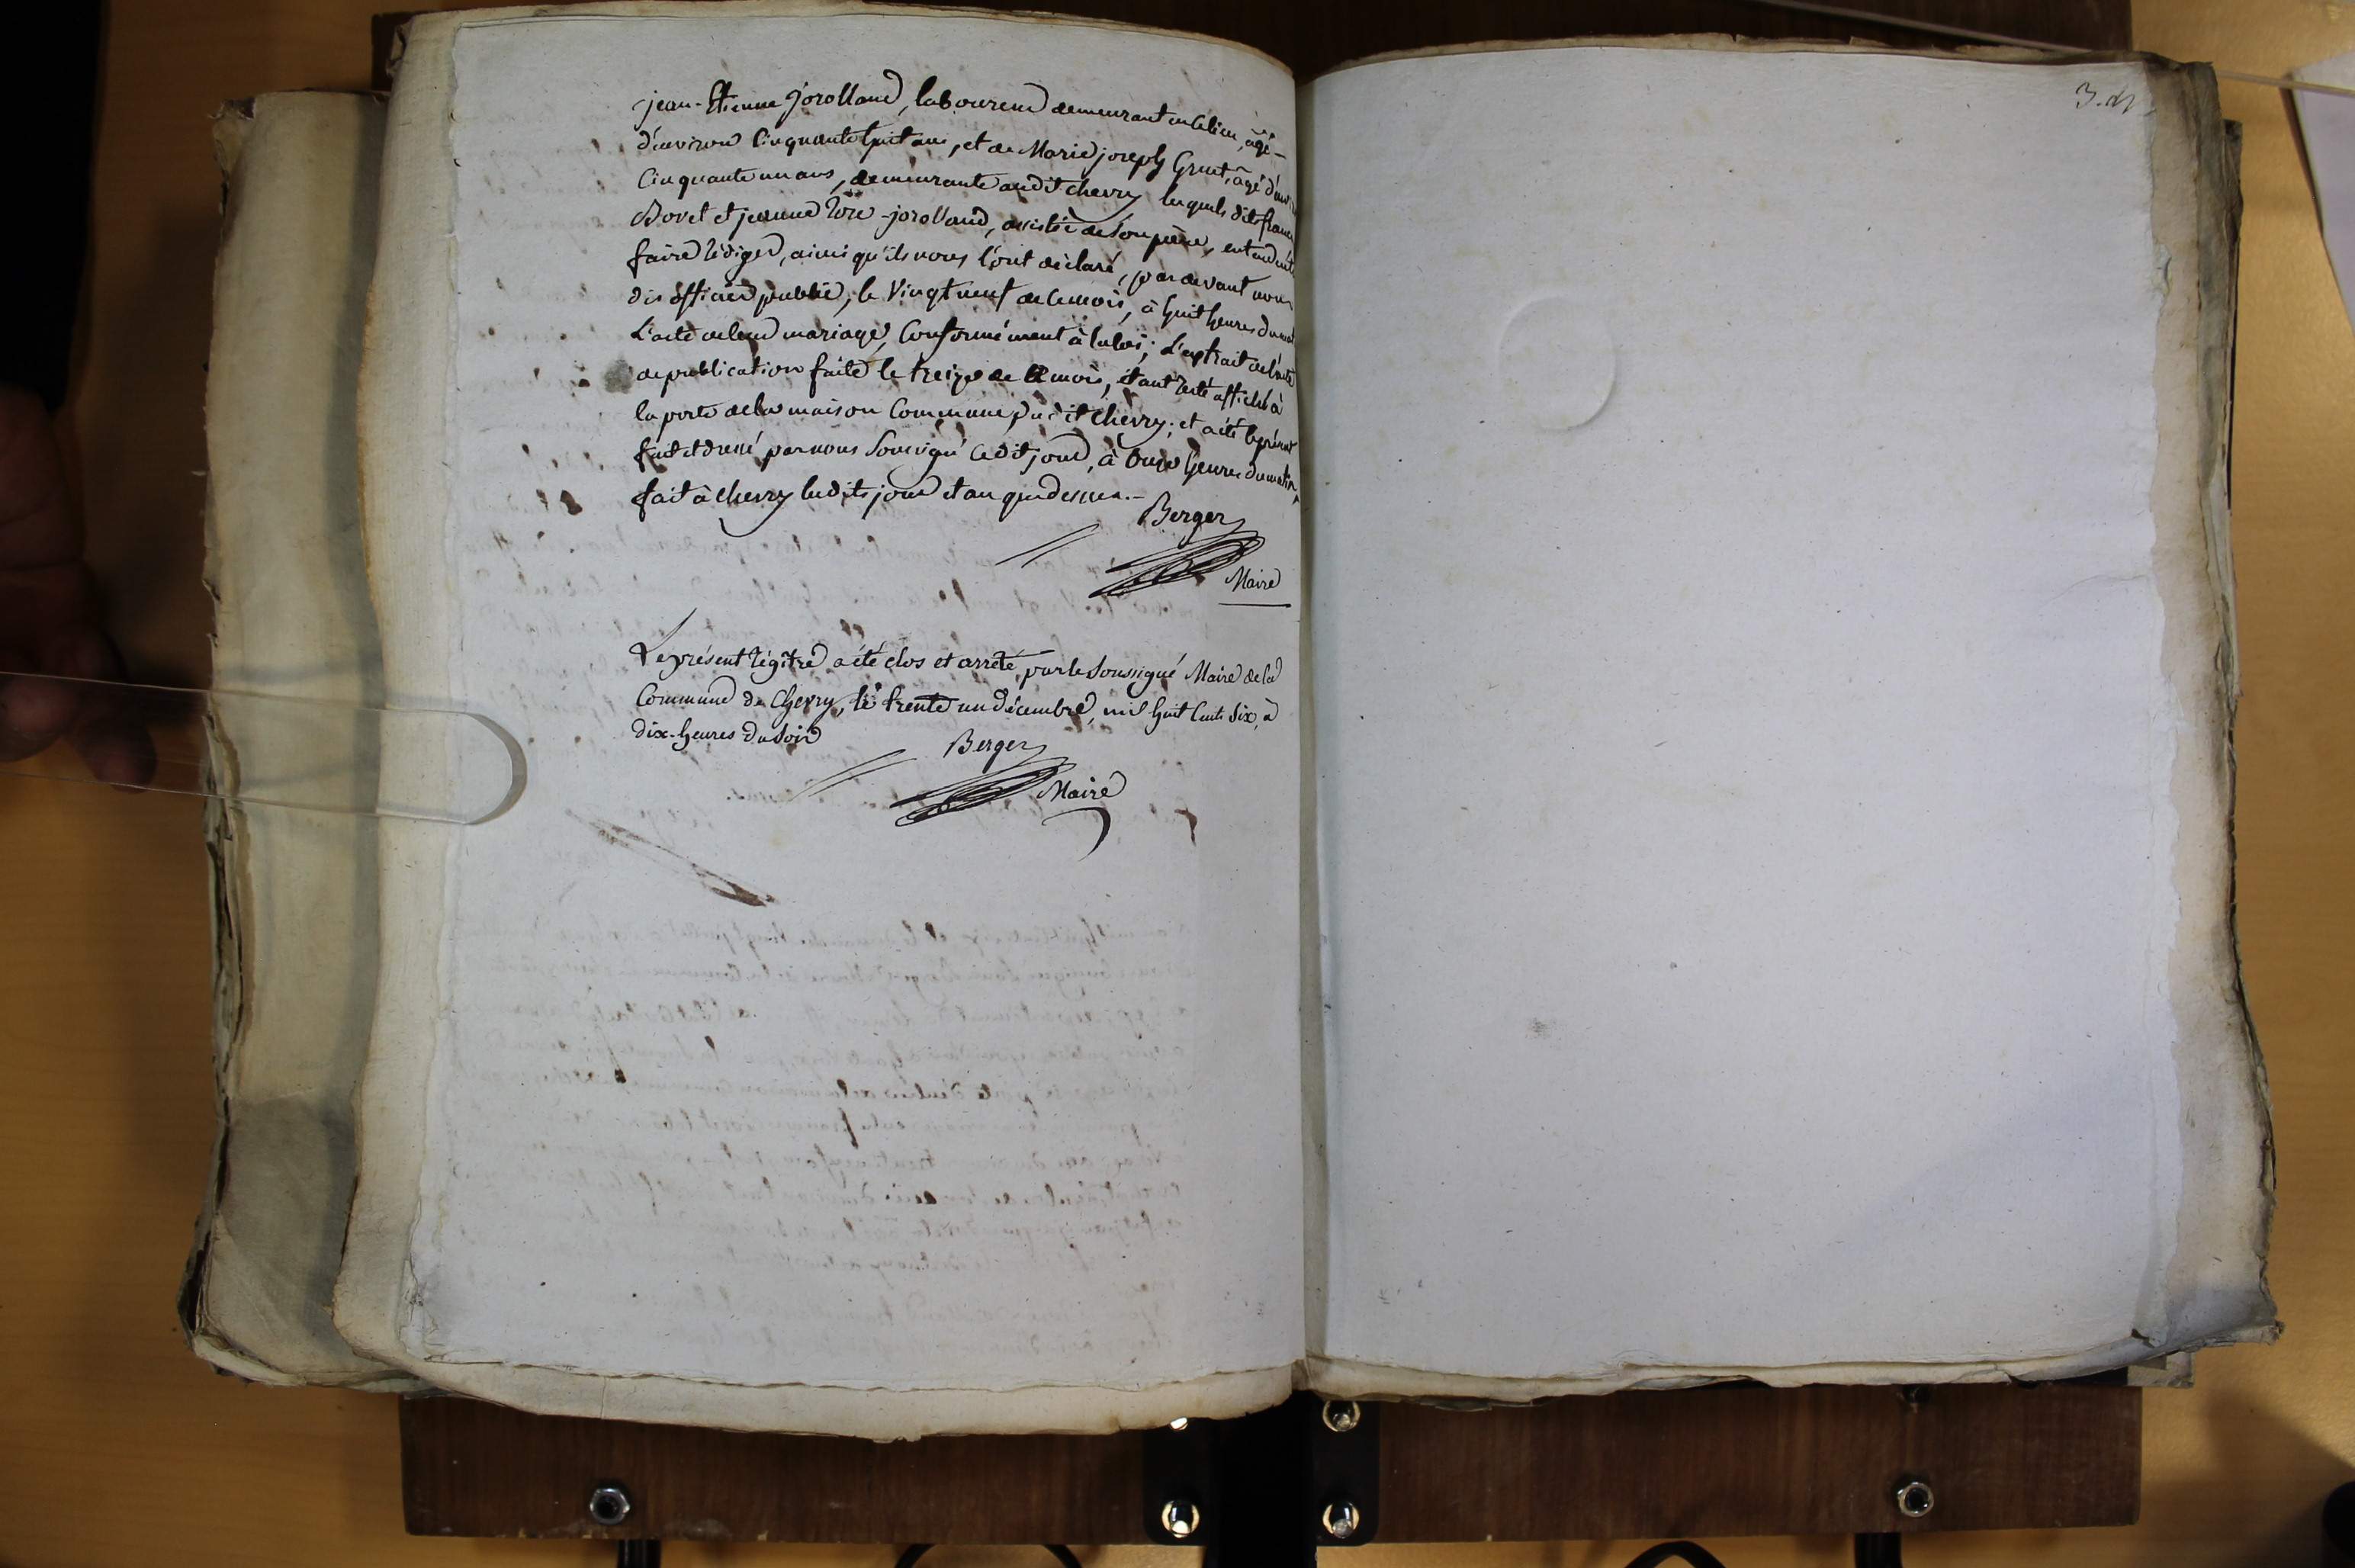 jean-Etienne jorolland, laboureur demeurant en ce lieu, âgé
d'environ Cinquante huit ans, et de Marie joseph Gruet, âgé d'env
Cinquante un ans, demeurante audit chevry lesquels dits franç
Bovet et jeanne Rose jorolland, assistée de son père, entendent
faire rédiger, ainsi qu'ils nous l'ont déclaré, par devant nous
dis officier public, le Vingt neuf de ce mois, à huit heures du mat
L'acte de leur mariage, Conformément à la loi; L'extrait de l'acte
de publication faite le treize de ce mois, étant resté affiché à
la porte de la maison Commune dudit chevry; et a été le présent
fait et dressé par nous Soussigné cedit jour, à Onze heures du matin,
fait à chevry lesdits jour et an que dessus.-
Berger
Maire
Le présent régitre a été clos et arreté, par le Soussigné Maire de la
Commune de Chevry, le trente un décembre, mil huit Cents Six, à
dix-heures du Soir
Berger
Maire